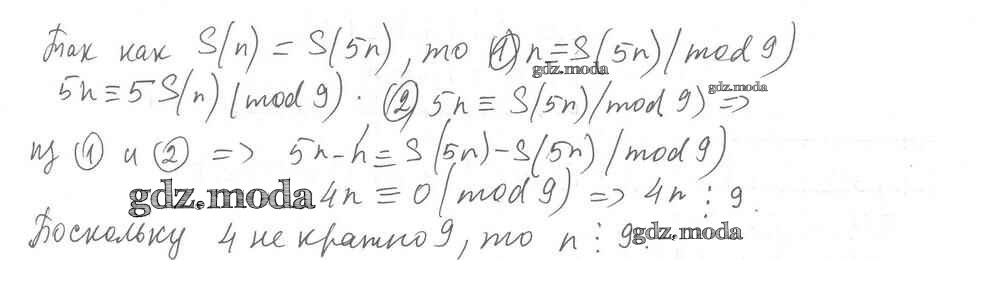 Так как S(n) = S(5n), то ① n ≡ S(5n) (mod 9)
gdz.moda
5n ≡ 5S(n) (mod 9). ② 5n ≡ S(5n) (mod 9) =>
gdz.moda
из ① и ② => 5n-n ≡ S(5n)-S(5n) (mod 9)
gdz.moda 4n ≡ 0 (mod 9) => 4n ⋮ 9.
Поскольку 4 не кратно 9, то n ⋮ 9.
gdz.moda